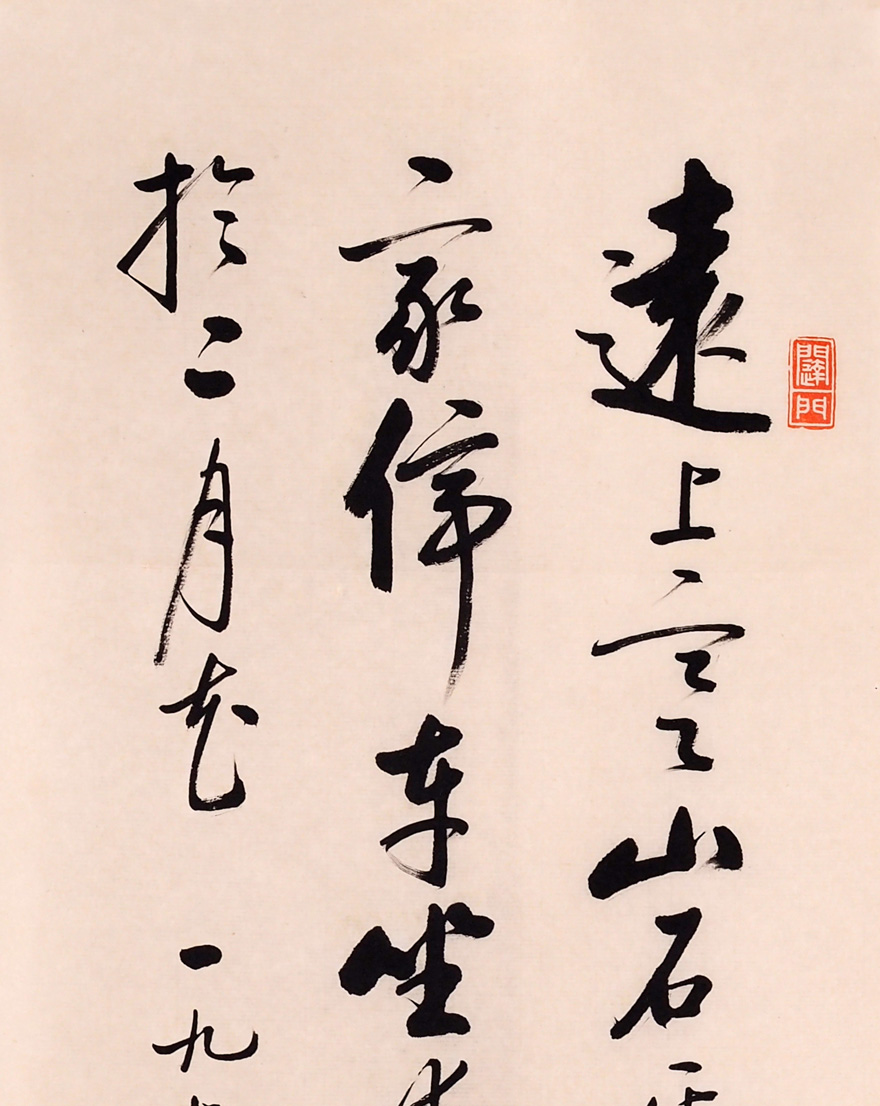 遠上寒山石
家停车坐
於二月花 一九